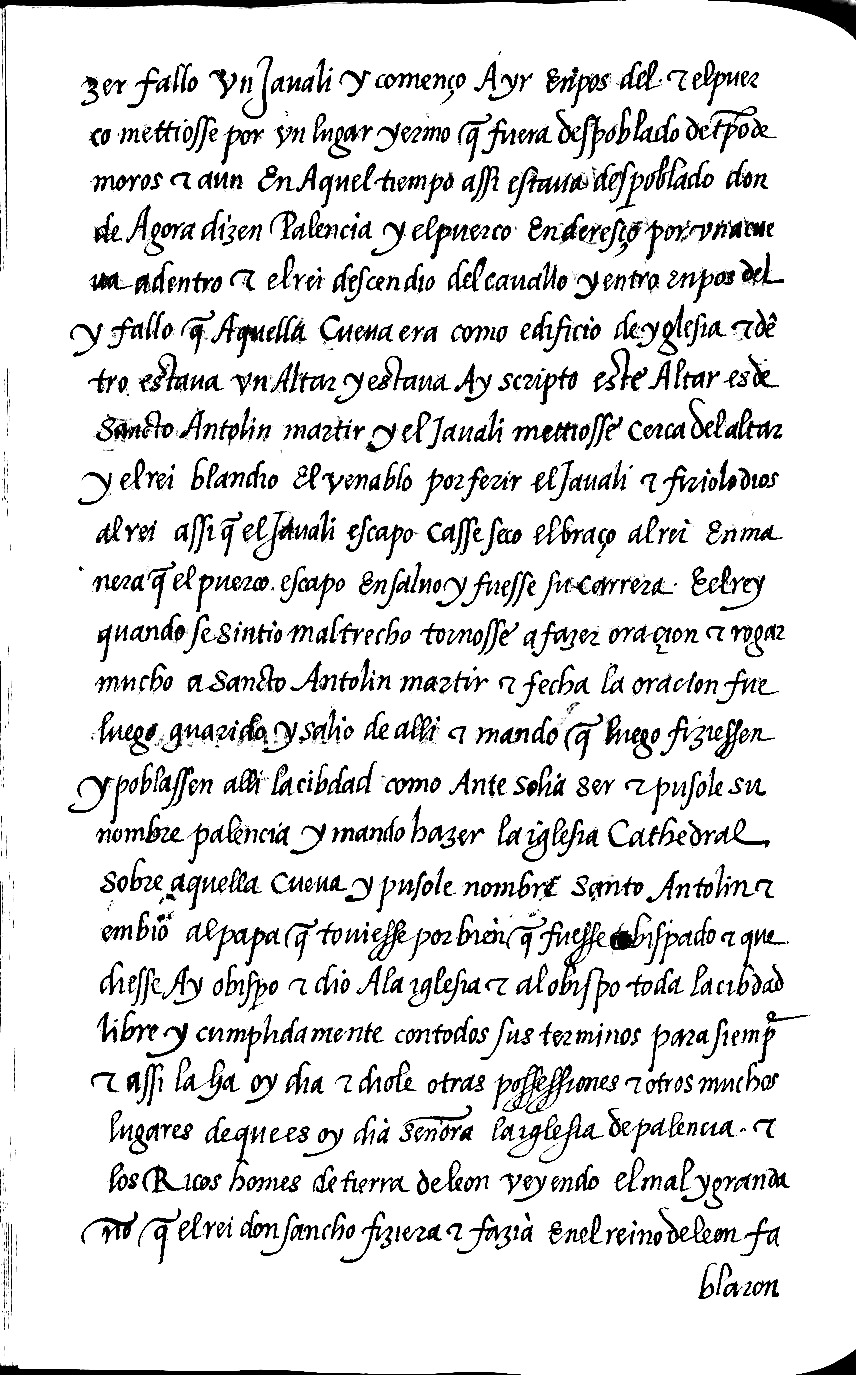 zer fallo vn Jauali y començo Ayr Enpos del · ⁊ elpuer
co mettiosse por vn lugar yermo q̃ fuera despoblado de tp̃o de
moros ⁊ aun En Aquel tiempo assi estaua despoblado don
de Agora dizen Palencia y elpuerco Endereſço por vna cue
ua adentro ⁊ el rei descendio del cauallo y entro enpos del
y fallo q̃ Aquella Cueua era como edificio de yglesia ⁊ dẽ
tro estaua vn Altar y estaua Ay scripto este Altar es de
Sancto Antolin martir y el Jauali mettiosse cerca del altar
y el rei blandio El venablo por ferir el Jauali ⁊ firiolo dios
al rei assi q̃ el Jauali escapo Casse seco el braço al rei En ma
nera q̃ el puerco escapo En saluo y fuesse su Carrera · E el rey
quando se Sintio maltrecho tornosse a fazer oraçion ⁊ rogar
mucho a Sancto Antolin martir ⁊ fecha la oracion fue
luego guarido y salio de alli ⁊ mando q̃ luego fiziessen
y poblassen alli la cibdad como Ante solia ser ⁊ pusole su
nombre palencia y mando hazer la iglesia Cathedral
Sobre aquella Cueua y pusole nombre Santo Antolin ⁊
embio al papa q̃ touiesse por bien q̃ fuesse obispado ⁊ que
diesse Ay obispo ⁊ dio Ala iglesia ⁊ al obispo toda la cibdad
libre y cumplidamente con todos sus terminos para siemp̃
⁊ assi la ha oy dia ⁊ diole otras possessiones ⁊ otros muchos
lugares de que es oy dia señora la iglesia de palencia · ⁊
los Ricos homes de tierra de leon veyendo el mal y granda
ño q̃ el rei don sancho fiziera ⁊ fazia En el reino de leon fa
blaron